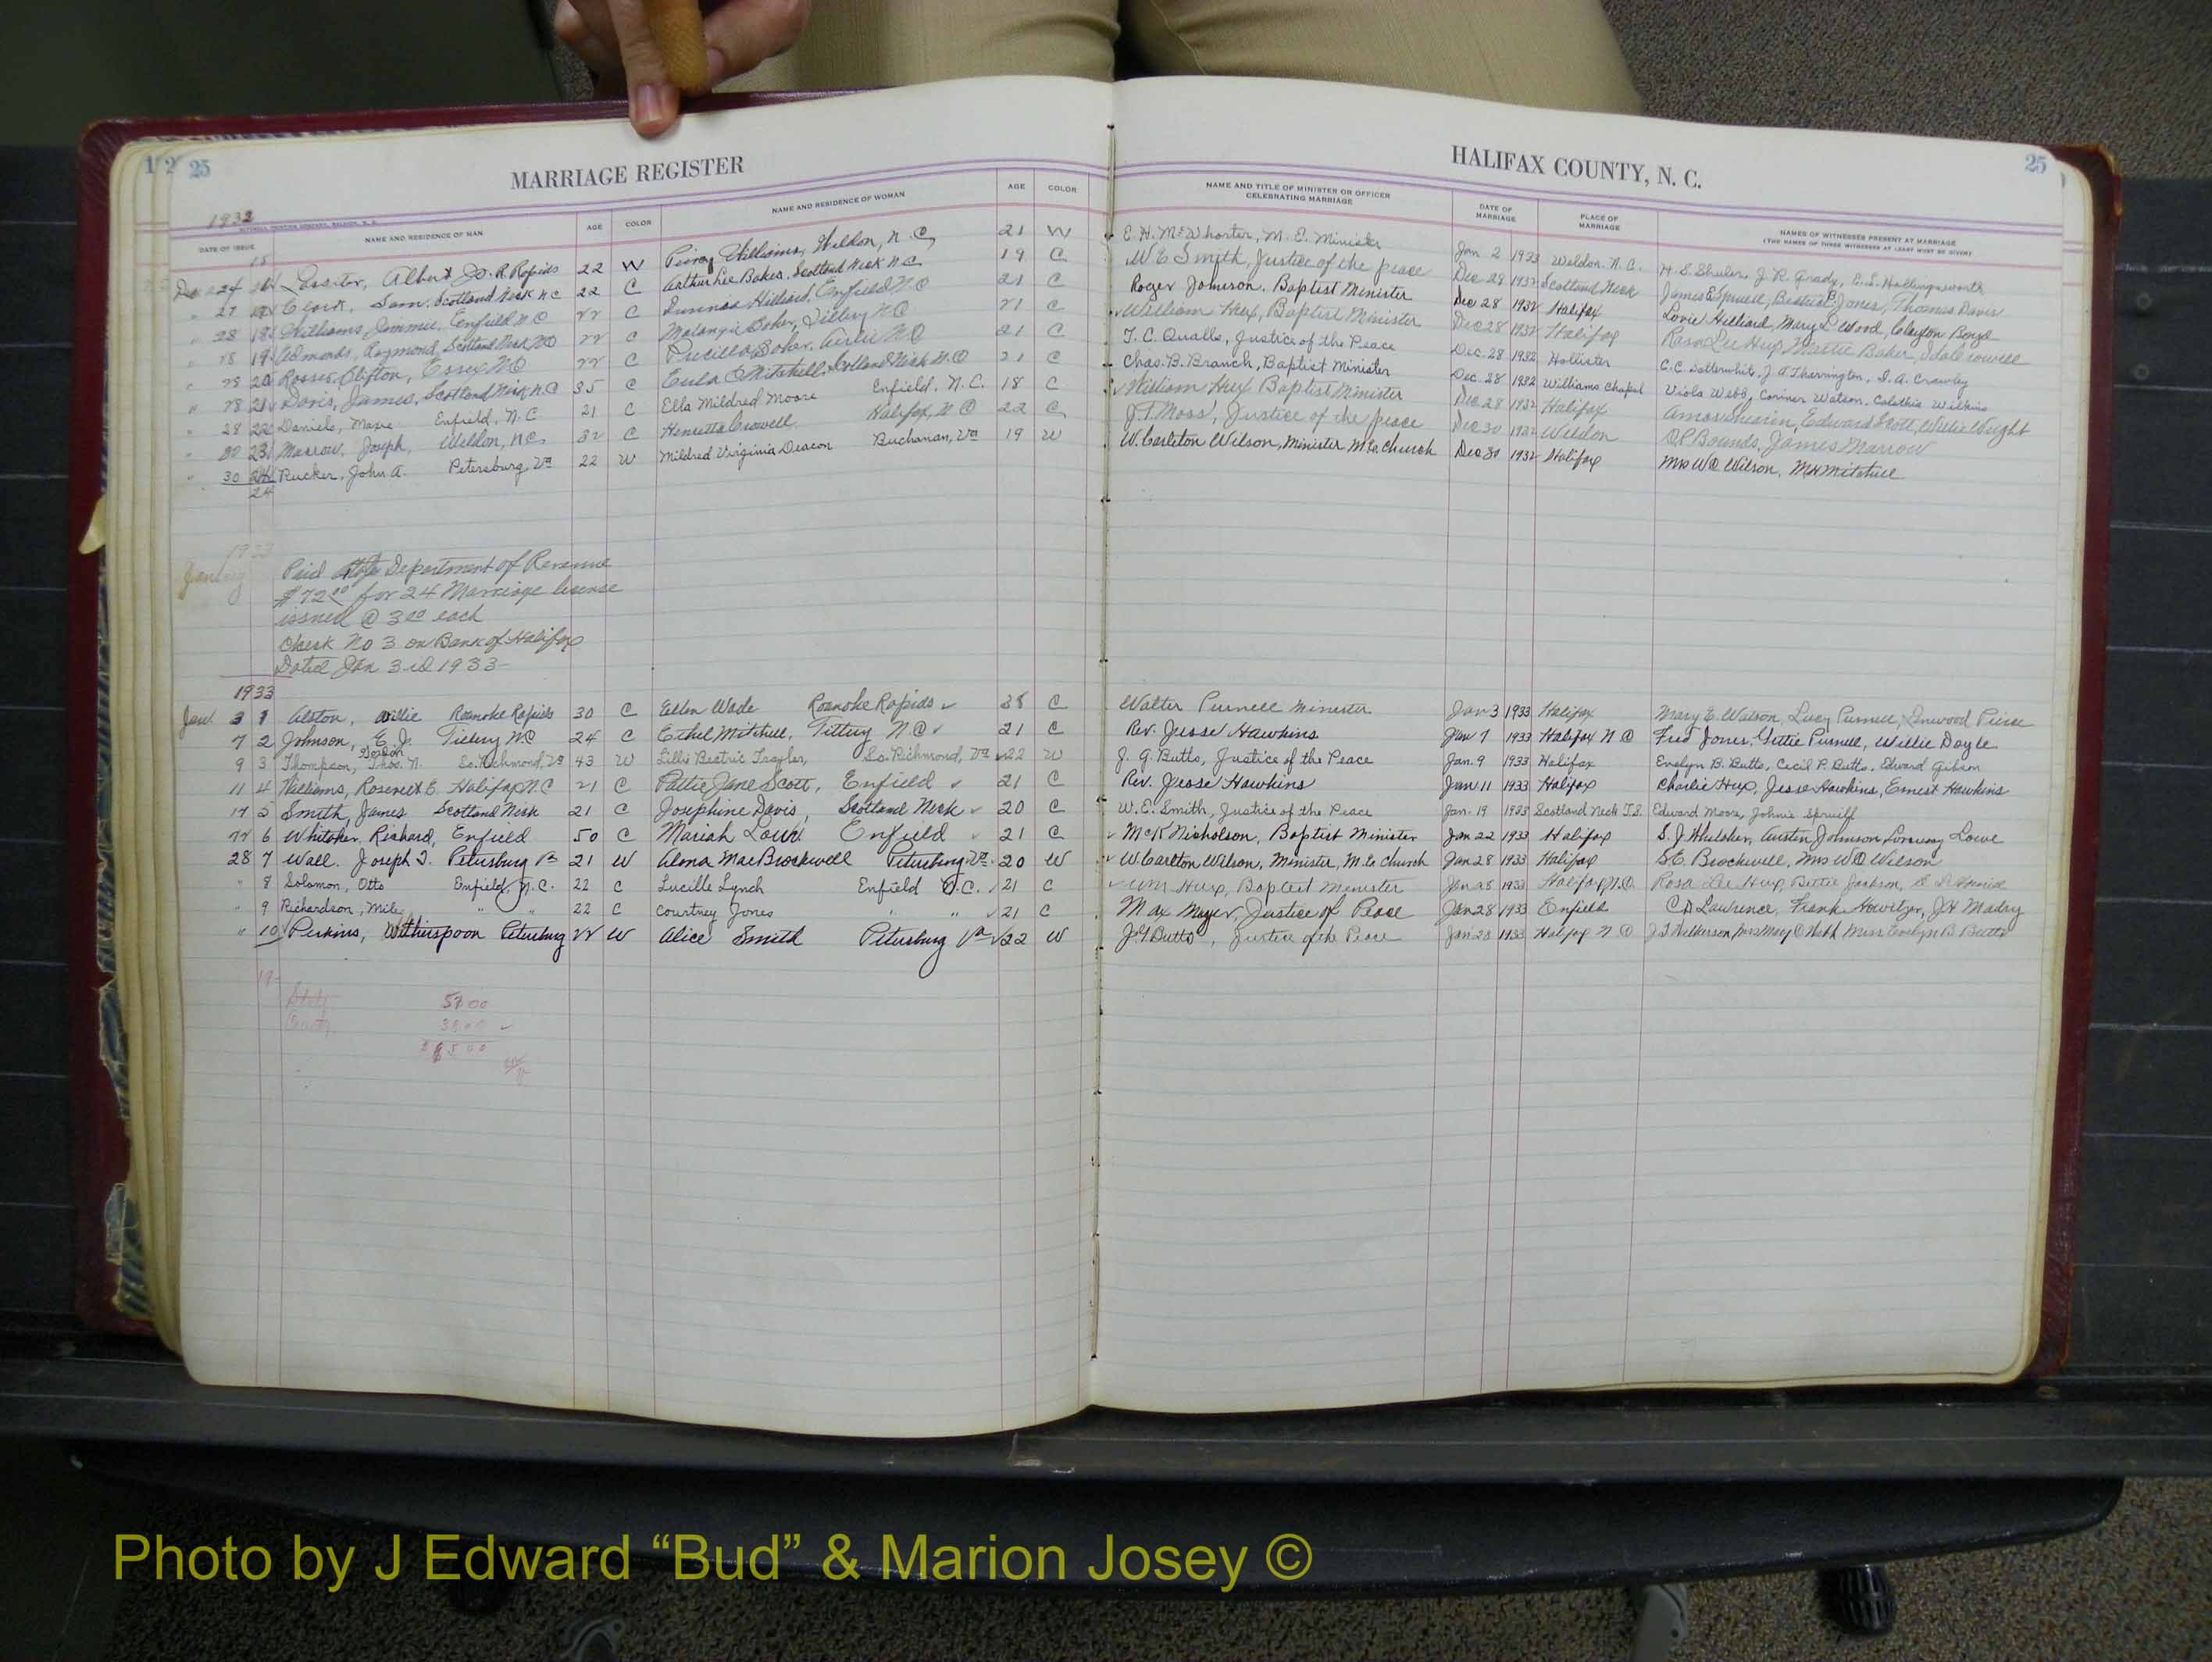 25
MARRIAGE REGISTER
HALIFAX COUNTY, N. C.
25
DATE OF ISSUE NAME AND RESIDENCE OF MAN AGE COLOR NAME AND RESIDENCE OF WOMAN AGE COLOR NAME AND TITLE OF MINISTER OR OFFICER CELEBRATING MARRIAGE DATE OF MARRIAGE PLACE OF MARRIAGE NAMES OF WITNESSES PRESENT AT MARRIAGE (THE NAMES OF THREE WITNESSES AT LEAST MUST BE GIVEN)
24 Lassiter, Albert R. Rapids 22 W Williams, Weldon, N. C. 21 W E. H. McWhorter, M. E. Minister Jan 2 1933 Weldon. N. C. H. S. Shuler, J. R. Grady, C. S. Hollingsworth
27 Clark, Sam. Scotland Neck N C 22 C Baker, Scotland Neck N C 19 C W E Smith, Justice of the peace Dec 28 1932 Scotland Neck James E Spruell, Jones, Thomas Davis
28 18 Williams, Jimmie, Enfield N C 22 C Hilliard, Enfield N C 21 C Roger Johnson. Baptist Minister Dec 28 1932 Halifax Lovie Hilliard, Mary L Wood, Clayton Boyd
28 19 Edmonds, Raymond, Scotland Neck N C 22 C Baker, Tillery N C 21 C William Hux, Baptist Minister Dec 28 1932 Halifax Rosa Lee Hux Mattie Baker, Ida Crowell
28 20 Rosser, Clifton, Essex N C 22 C Pricilla Baker, Airlie N C 21 C T. C. Qualls, Justice of the Peace Dec. 28 1932 Hollister C. C. Satterwhite, J. A. Tharrington, I. A. Crawley
28 21 Davis, James, Scotland Neck N C 35 C Eula Mitchell, Scotland Neck N C 21 C Chas. B. Branch, Baptist Minister Dec. 28 1932 Williams Chapel Viola Webb, Coriner Watson, Wilkins
28 22 Daniels, Enfield, N. C 21 C Ella Mildred Moore Enfield, N. C. 18 C William Hux Baptist Minister Dec 28 1932 Halifax Edward Scott, Willie Wright
23 Marrow, Joseph, Weldon, N C. 32 C Henrietta Crowell. Halifax, N C 22 C J. T. Moss, Justice of the peace Dec 30 1932 Weldon Bounds, James Marrow
30 24 Rucker, John A. Petersburg, Va 22 W Mildred Virginia Deacon Buchanan, Va 19 W W. Carleton Wilson, Minister M. E. Church Dec 30 1932 Halifax Mrs W C Wilson, Mitchell
24
1933
January Paid State Department of Revenue
$72.00 for 24 Marriage license
issued @ 3.00 each
Check No 3 on Bank of Halifax
Dated Jan 3rd 1933
1933
Jan 3 1 Alston, Willie Roanoke Rapids 30 C Ellen Wade Roanoke Rapids 28 C Walter Purnell Minister Jan 3 1933 Halifax Mary E. Watson, Lucy Purnell, Linwood Pierce
7 2 Johnson, E. J. Tillery N C 24 C Ethel Mitchell, Tillery N C 21 C Rev. Jesse Hawkins Jan 7 1933 Halifax N C Fred Jones, Purnell, Willie Doyle
9 3 Thompson, Thos. N. So. Richmond, Va 43 W Lillie Beatric Traylor, So. Richmond, Va 22 W J. G. Butts, Justice of the Peace Jan. 9 1933 Halifax Evelyn B. Butts, Cecil P. Butts, Edward Gibson
11 4 Williams, Rosevelt E. Halifax N C 21 C Pattie Jane Scott, Enfield 21 C Rev. Jesse Hawkins Jan 11 1933 Halifax Charlie Hux, Jesse Hawkins, Ernest Hawkins
17 5 Smith, James Scotland Neck 21 C Josephine Davis, Scotland Neck 20 C W. E. Smith, Justice of the Peace Jan. 19 1933 Scotland Neck T.S. Edward Moore, Johnie Spruill
22 6 Whitaker, Richard, Enfield 50 C Mariah Lowe Enfield 21 C McK Nicholson, Baptist Minister Jan 22 1933 Halifax S. J. Whitaker, Austin Johnson, Lowe
28 7 Wall. Joseph T. Petersburg Va 21 W Alma Mae Brockwell Petersburg Va. 20 W W. Carlton Wilson, Minister, M. E. Church Jan 28 1933 Halifax S. E. Brockwell, Mrs W C Wilson
" 8 Solomon, Otto Enfield, N. C. 22 C Lucille Lynch Enfield N. C. 21 C Wm Hux, Baptist Minister Jan 28 1933 Halifax, N. C. Rosa Lee Hux, Bettie Jackson,
" 9 Richardson, Mile " " 22 C Courtney Jones " " 21 C Max Meyer, Justice of Peace Jan 28 1933 Enfield C A Lawrence, Frank Howitzer, J H Madry
" 10 Perkins, Witherspoon Petersburg 22 W Alice Smith Petersburg Va 22 W J. G. Butts, Justice of the Peace Jan 28 1933 Halifax N C J. T. Wilkerson Mrs Mary C Webb Miss Evelyn B. Butts
Photo by J Edward “Bud” & Marion Josey ©